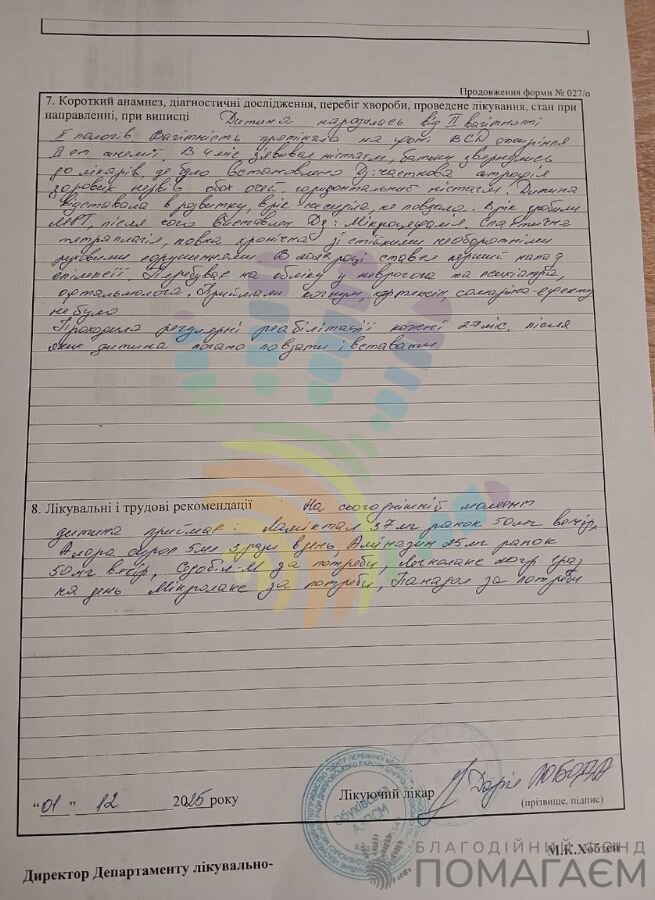 Продовження форми № 027/о
7. Короткий анамнез, діагностичні дослідження, перебіг хвороби, проведене лікування, стан при
направленні, при виписці Дитина народилась від II вагітності
II пологів. Вагітність протікала на фоні ВСД ожиріння
II ст анемії. В 4 міс з'явився ністагм, батьки звернулись
до лікарів, де було встановлено Д: часткова атрофія
зорових нервів обох очей, горизонтальний ністагм. Дитина
відставала в розвитку, в рік не сиділа, не повзала. В рік зробили
МРТ, після чого виставлен Дз: Мікроцефалія Спастична
тетраплегія, повна хронічна зі стійкими необоротніми
руховими порушеннями В році стався перший напад
епілепсії. Перебуває на обліку у невролога та психіатра,
офтальмолога. Приймали кортексін, ефекту
не було
Проходила регулярні реабілітації кожені міс. після
яких дитина почала повзати і вставати
8. Лікувальні і трудові рекомендації На сьогоднішній момент
дитина приймає: Ламіктал 37 мг ранок 50 мг вечір,
сироп 5 мл 3 рази в день, Аміназин 25 мг ранок
50 мг вечір, за потреби,
на день Мікролакс за потреби, Панадол за потреби
"01" 12 2025 року
Лікуючий лікар Дарія ЛОБОДА
(прізвище, підпис)
Обухівська
АЗПСМ
М.К.Хобзей
Директор Департаменту лікувально-
БЛАГОДІЙНИЙ ФОНД
ПОМАГАЄМ